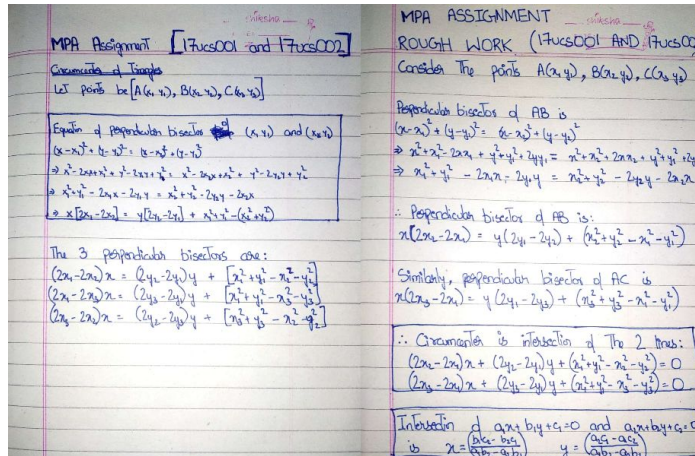 shiksha
MPA Assignment [17ucs001 and 17ucs002]
Circumcenter of Triangle
Let points be [A(x₁ y₁), B(x₂ y₂), C(x₃ y₃)]
Equation of perpendicular bisector of (x₁ y₁) and (x₂ y₂)
(x-x₁)² + (y-y₁)² = (x-x₂)² + (y-y₂)²
⇒ x² - 2xx₁ + x₁² + y² - 2yy₁ + y₁² = x² - 2xx₂ + x₂² + y² - 2y₂y + y₂²
⇒ x₁² + y₁² - 2x₁x - 2y₁y = x₂² + y₂² - 2y₂y - 2x₂x
⇒ x[2x₂ - 2x₁] = y[2y₁ - 2y₂] + x₂² + y₂² - (x₁² + y₁²)
The 3 perpendicular bisectors are:
(2x₁-2x₂)x = (2y₂-2y₁)y + [x₁² + y₁² - x₂² - y₂²]
(2x₁-2x₃)x = (2y₃-2y₁)y + [x₁² + y₁² - x₃² - y₃²]
(2x₃-2x₂)x = (2y₂-2y₃)y + [x₃² + y₃² - x₂² - y₂²]
shiksha
MPA ASSIGNMENT
ROUGH WORK (17ucs001 AND 17ucs00
Consider The points A(x₁ y₁), B(x₂ y₂), C(x₃ y₃)
Perpendicular bisector of AB is
(x-x₁)² + (y-y₁)² = (x-x₂)² + (y-y₂)²
⇒ x₁² + y₁² - 2x₁x - 2y₁y = x₂² + y₂² - 2y₂y - 2x₂x
∴ Perpendicular bisector of AB is:
x[2x₂-2x₁) = y(2y₁-2y₂) + (x₂² + y₂² - x₁² - y₁²)
Similarly, perpendicular bisector of AC is
x(2x₃-2x₁) = y(2y₁-2y₃) + (x₃² + y₃² - x₁² - y₁²)
∴ Circumcenter is intersection of The 2 lines:
(2x₂-2x₁)x + (2y₂-2y₁)y + (x₁² + y₁² - x₂² - y₂²) = 0
(2x₃-2x₁)x + (2y₃-2y₁)y + (x₁² + y₁² - x₃² - y₃²) = 0
Intersection of a₁x + b₁y + c₁ = 0 and a₂x + b₂y + c₂ = 0
is x = (b₁c₂ - b₂c₁ / a₁b₂ - a₂b₁) y = (a₂c₁ - a₁c₂ / a₁b₂ - a₂b₁)